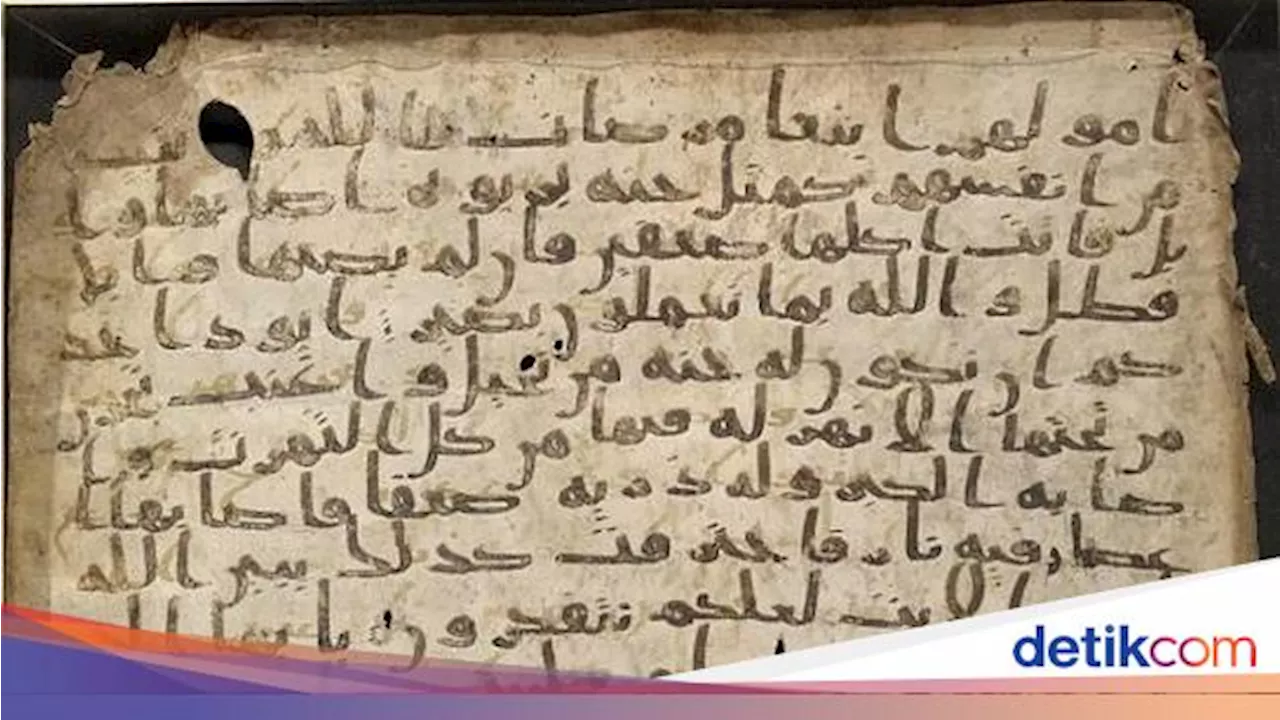 امولهم ابتغا مرضات الله
من انفسهم كمثل جنه بربوه اصابها وا
بل فاتت اكلها ضعفين فان لم يصبها وابل
فطل و الله بما تعملون بصير ايود احد
كم ان تكون له جنه من نخيل و اعنب تجري
من تحتها الانهر له فيها من كل الثمرت و ا
صابه الكبر و له ذريه ضعفا فاصابها ا
عصار فيه نار فاحترقت كذلك يبين الله
الايت لعلكم تتفكرون يايها
detikcom